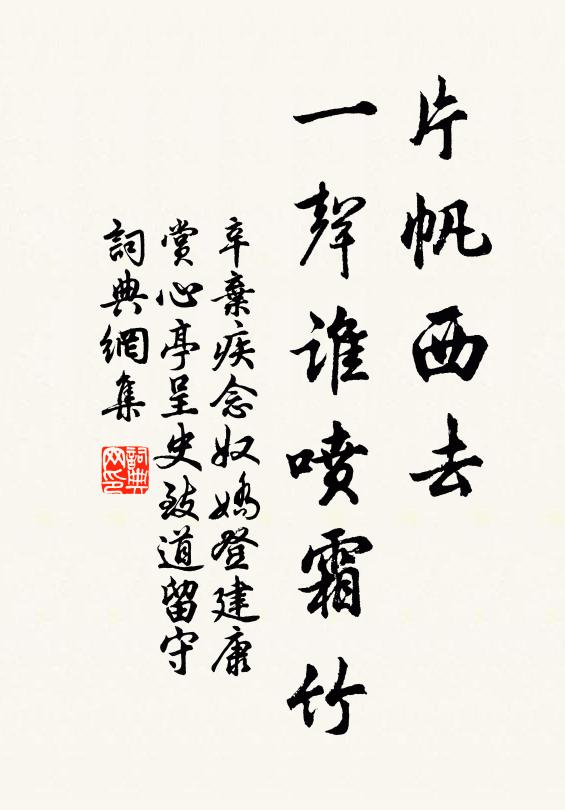 片帆西去
一聲誰噴霜竹
辛棄疾念奴嬌登建康
賞心亭呈史致道留守
詞典網集
詞典网印